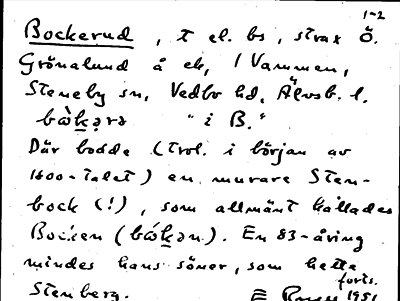 1-2
Bockerud, t el. bs, strax Ö.
Grönalund å ek, / Vammen,
Steneby sn, Vedbo hd, Älvsb. l.
bὼḵərə "i B."
Där bodde (trol. i början av
1600-talet) en murare Sten-
bock (!), som allmänt kallades
Bocken (bώḵən). En 83-åring
mindes hans söner, som hette
Stenberg. forts.
1951